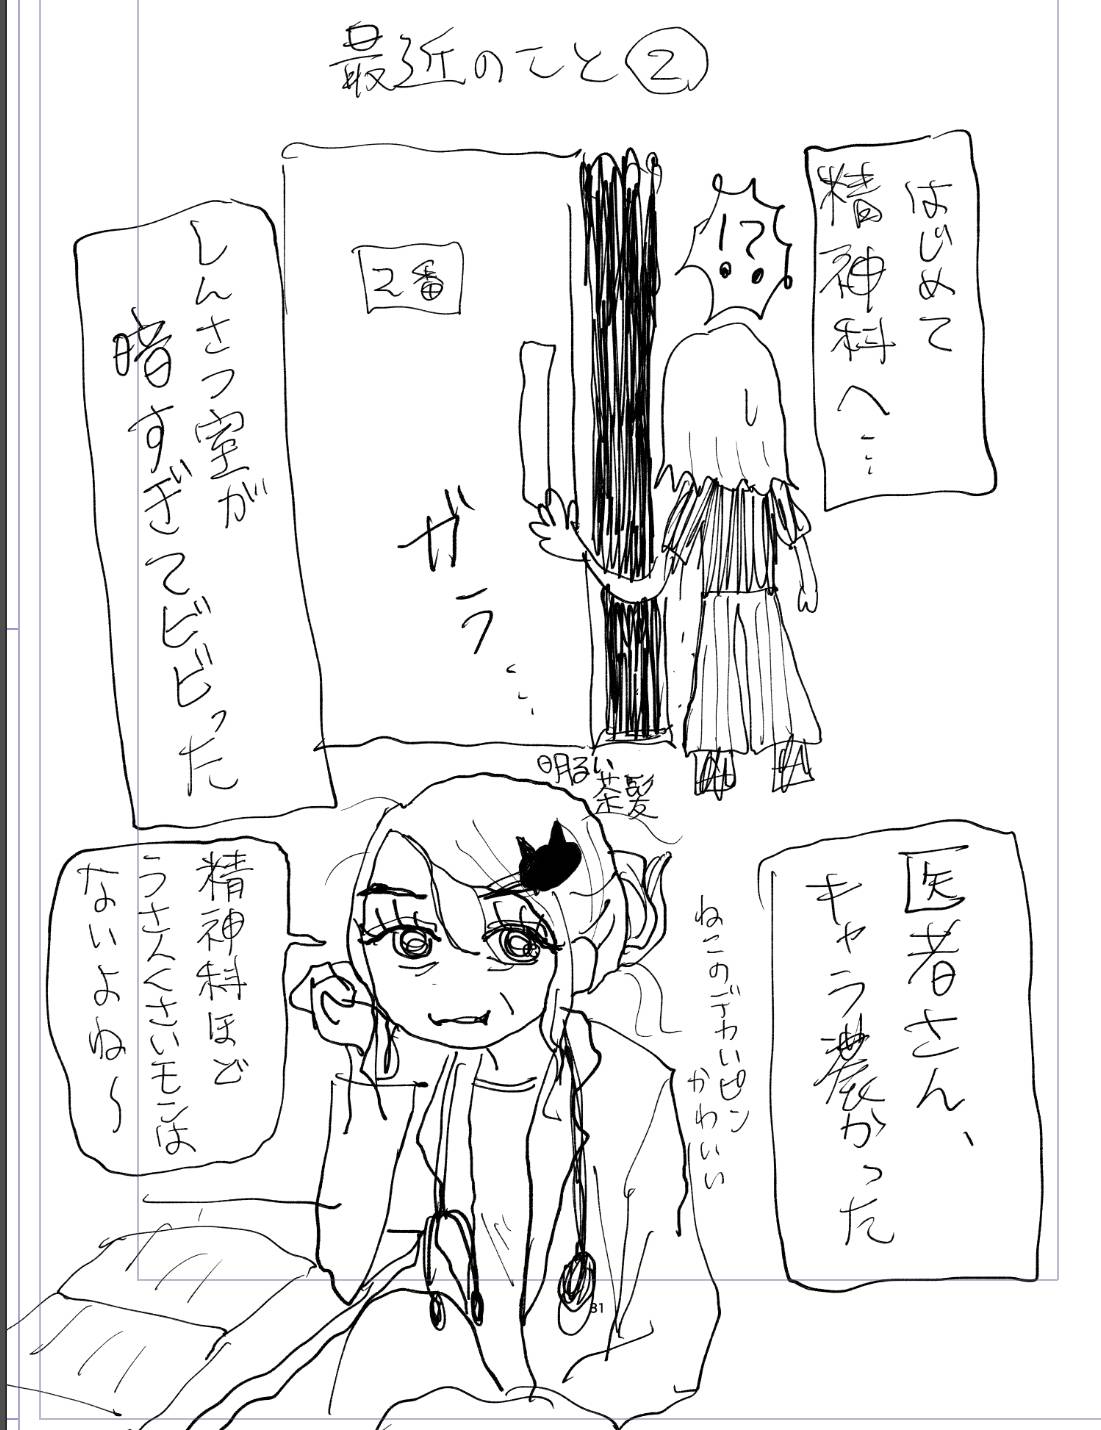 最近のこと②
はじめて
精神科へ…
!?
2番
ガラ…
しんさつ室が
暗すぎてビビった
明るい
茶髪
医者さん、
キャラ濃かった
ねこのデカいピン
かわいい
精神科ほど
うさんくさいモンは
ないよね〜
31